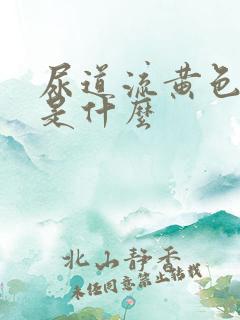 尿道流黄色
是什麼
北山静香
未经同意禁止转载